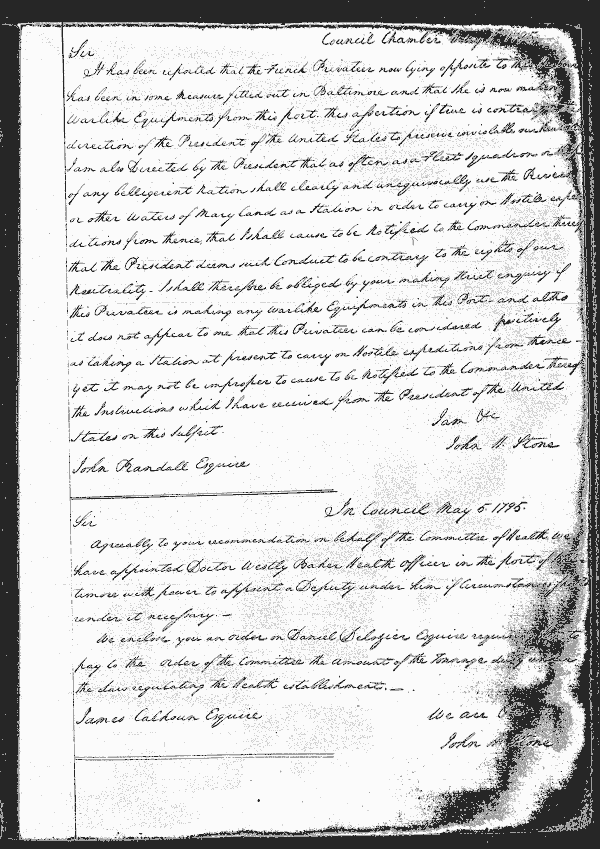 Council Chamber
Sir
It has been reported that the French Privatier now lying opposite to
has been in some measure fitted out in Baltimore and that she is now making
Warlike Equipments from this port. this assertion if true is contrary
direction of the President of the United States to preserve inviolable our
I am also Directed by the President that as often as a Fleet Squadron or
of any belligerent Nation shall clearly and unequivocally use the Rivers
or other Waters of Maryland as a Station in order to carry on Hostile expe
ditions from thence, that I shall cause to be Notified to the Commander thereof
that the President deems such Conduct to be contrary to the rights of our
Neutrality - I shall therefore be obliged by your making Strict enquiry if
this Privatier is making any Warlike Equipments in this Port - and altho
it does not appear to me that this Privatier can be considered positively
as taking a Station at present to carry on Hostile expeditions from thence -
yet it may not be improper to cause to be Notified to the Commander thereof
the Instructions which I have received from the President of the United
States on this Subject.
I am &c
John H. Stone
John Randall Esquire
In Council May 5 1795.
Sir
Agreeably to your recommendation on behalf of the Committee of Health We
have appointed Doctor Westly Baker Health Officer in the port of
timore with power to appoint a Deputy under him if Circumstances
render it necessary. -
We enclose you an order on Daniel Delozier Esquire
pay to the order of the Committee the amount of the Tonnage duty under
the law regulating the health establishments. -
James Calhoun Esquire
We are
John